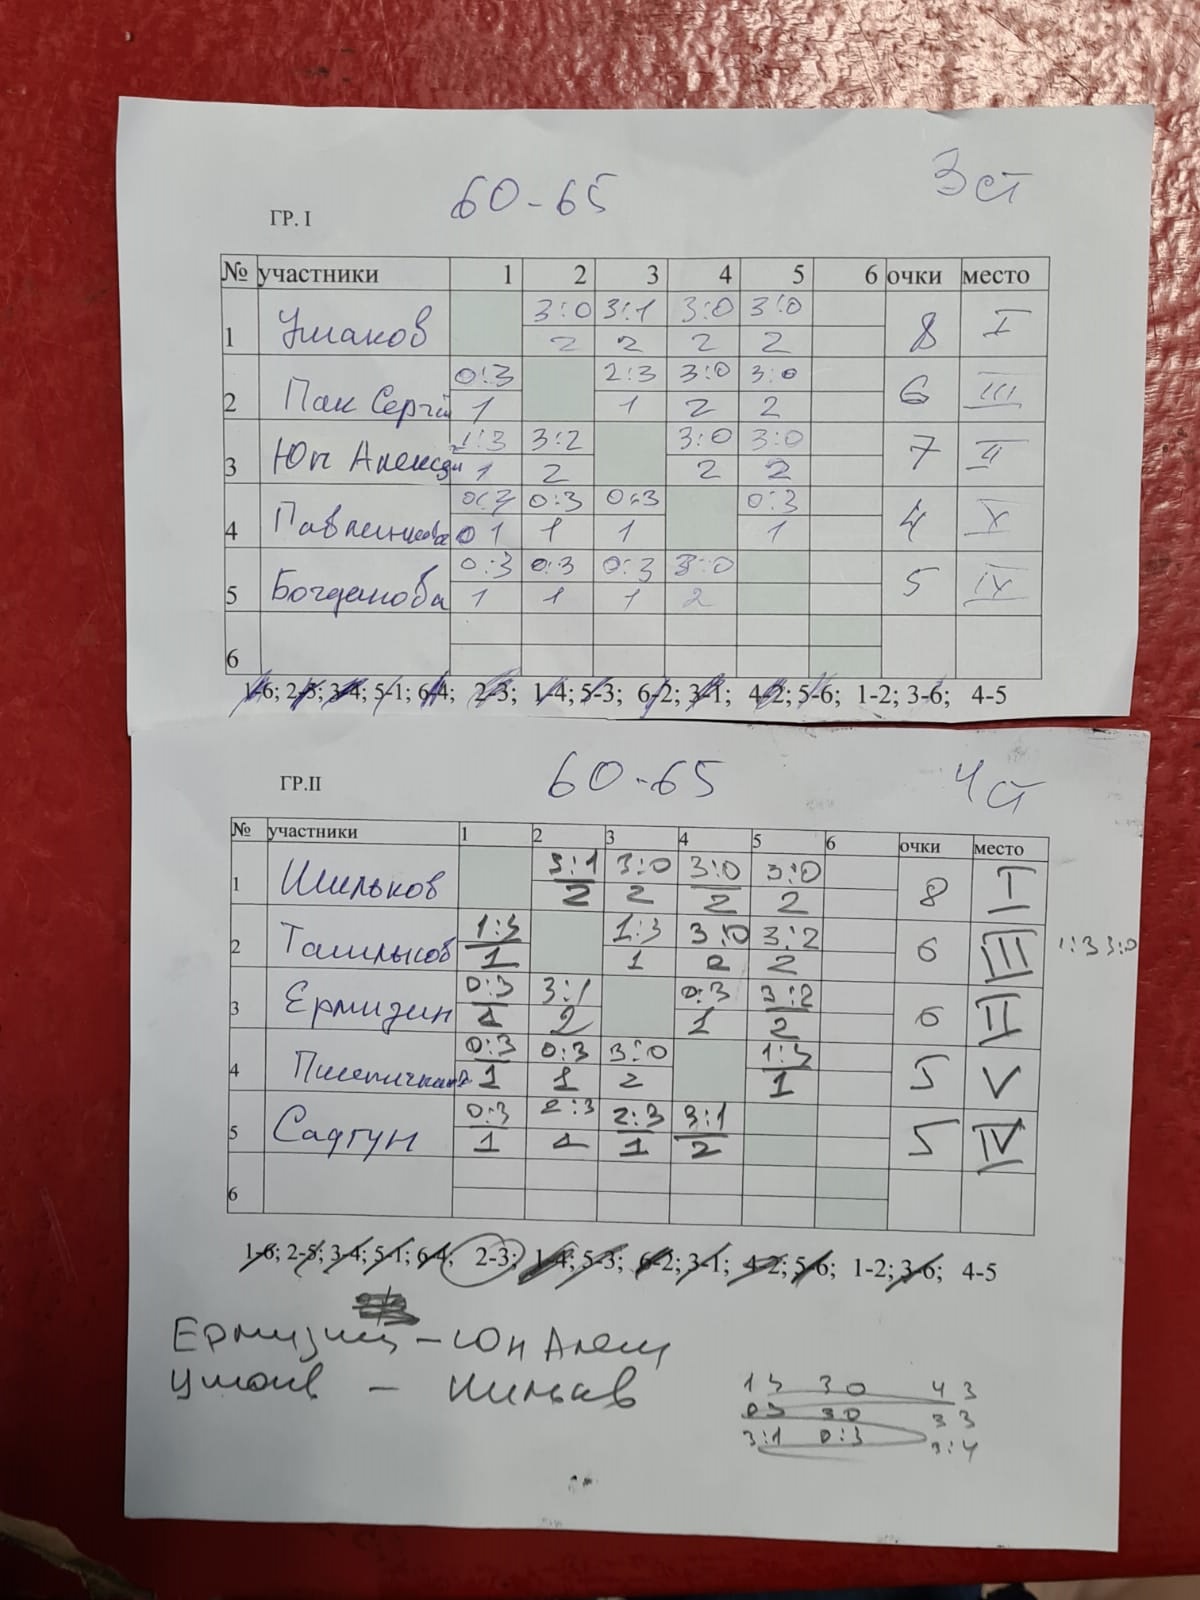 60-65 3 ст
ГР. I
№ участники 1 2 3 4 5 6 очки место
1 Ушаков 3:0 3:1 3:0 3:0 8 I
2 2 2 2
2 Пак Сергей 0:3 2:3 3:0 3:0 6 III
1 1 2 2
3 Юн Александр 1:3 3:2 3:0 3:0 7 II
1 2 2 2
4 0:3 0:3 0:3 0:3 4 V
0 1 1 1 1
5 Богданова 0:3 0:3 0:3 3:0 5 IV
1 1 1 2
6
1-6; 2-5; 3-4; 5-1; 6-4; 2-3; 1-4; 5-3; 6-2; 3-1; 4-2; 5-6; 1-2; 3-6; 4-5
60-65 4 ст
ГР.II
№ участники 1 2 3 4 5 6 очки место
1 Шильков 3:1 3:0 3:0 3:0 8 I
2 2 2 2
2 Ташлыков 1:3 1:3 3:0 3:2 6 III 1:3 3:0
1 1 2 2
3 Ермизин 0:3 3:1 0:3 3:2 6 II
1 2 1 2
4 0:3 0:3 3:0 1:3 5 V
1 1 2 1
5 Садгун 0:3 2:3 2:3 3:1 5 IV
1 1 1 2
6
1-6; 2-5; 3-4; 5-1; 6-4; 2-3; 1-4; 5-3; 6-2; 3-1; 4-2; 5-6; 1-2; 3-6; 4-5
Ермизин - Юн Алекс
13 30 43
03 30 33
3:1 0:3 3:4